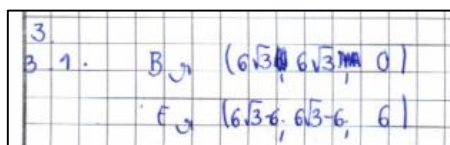 3.
3 1. B → (6√3, 6√3, 0)
E → (6√3-6, 6√3-6, 6)